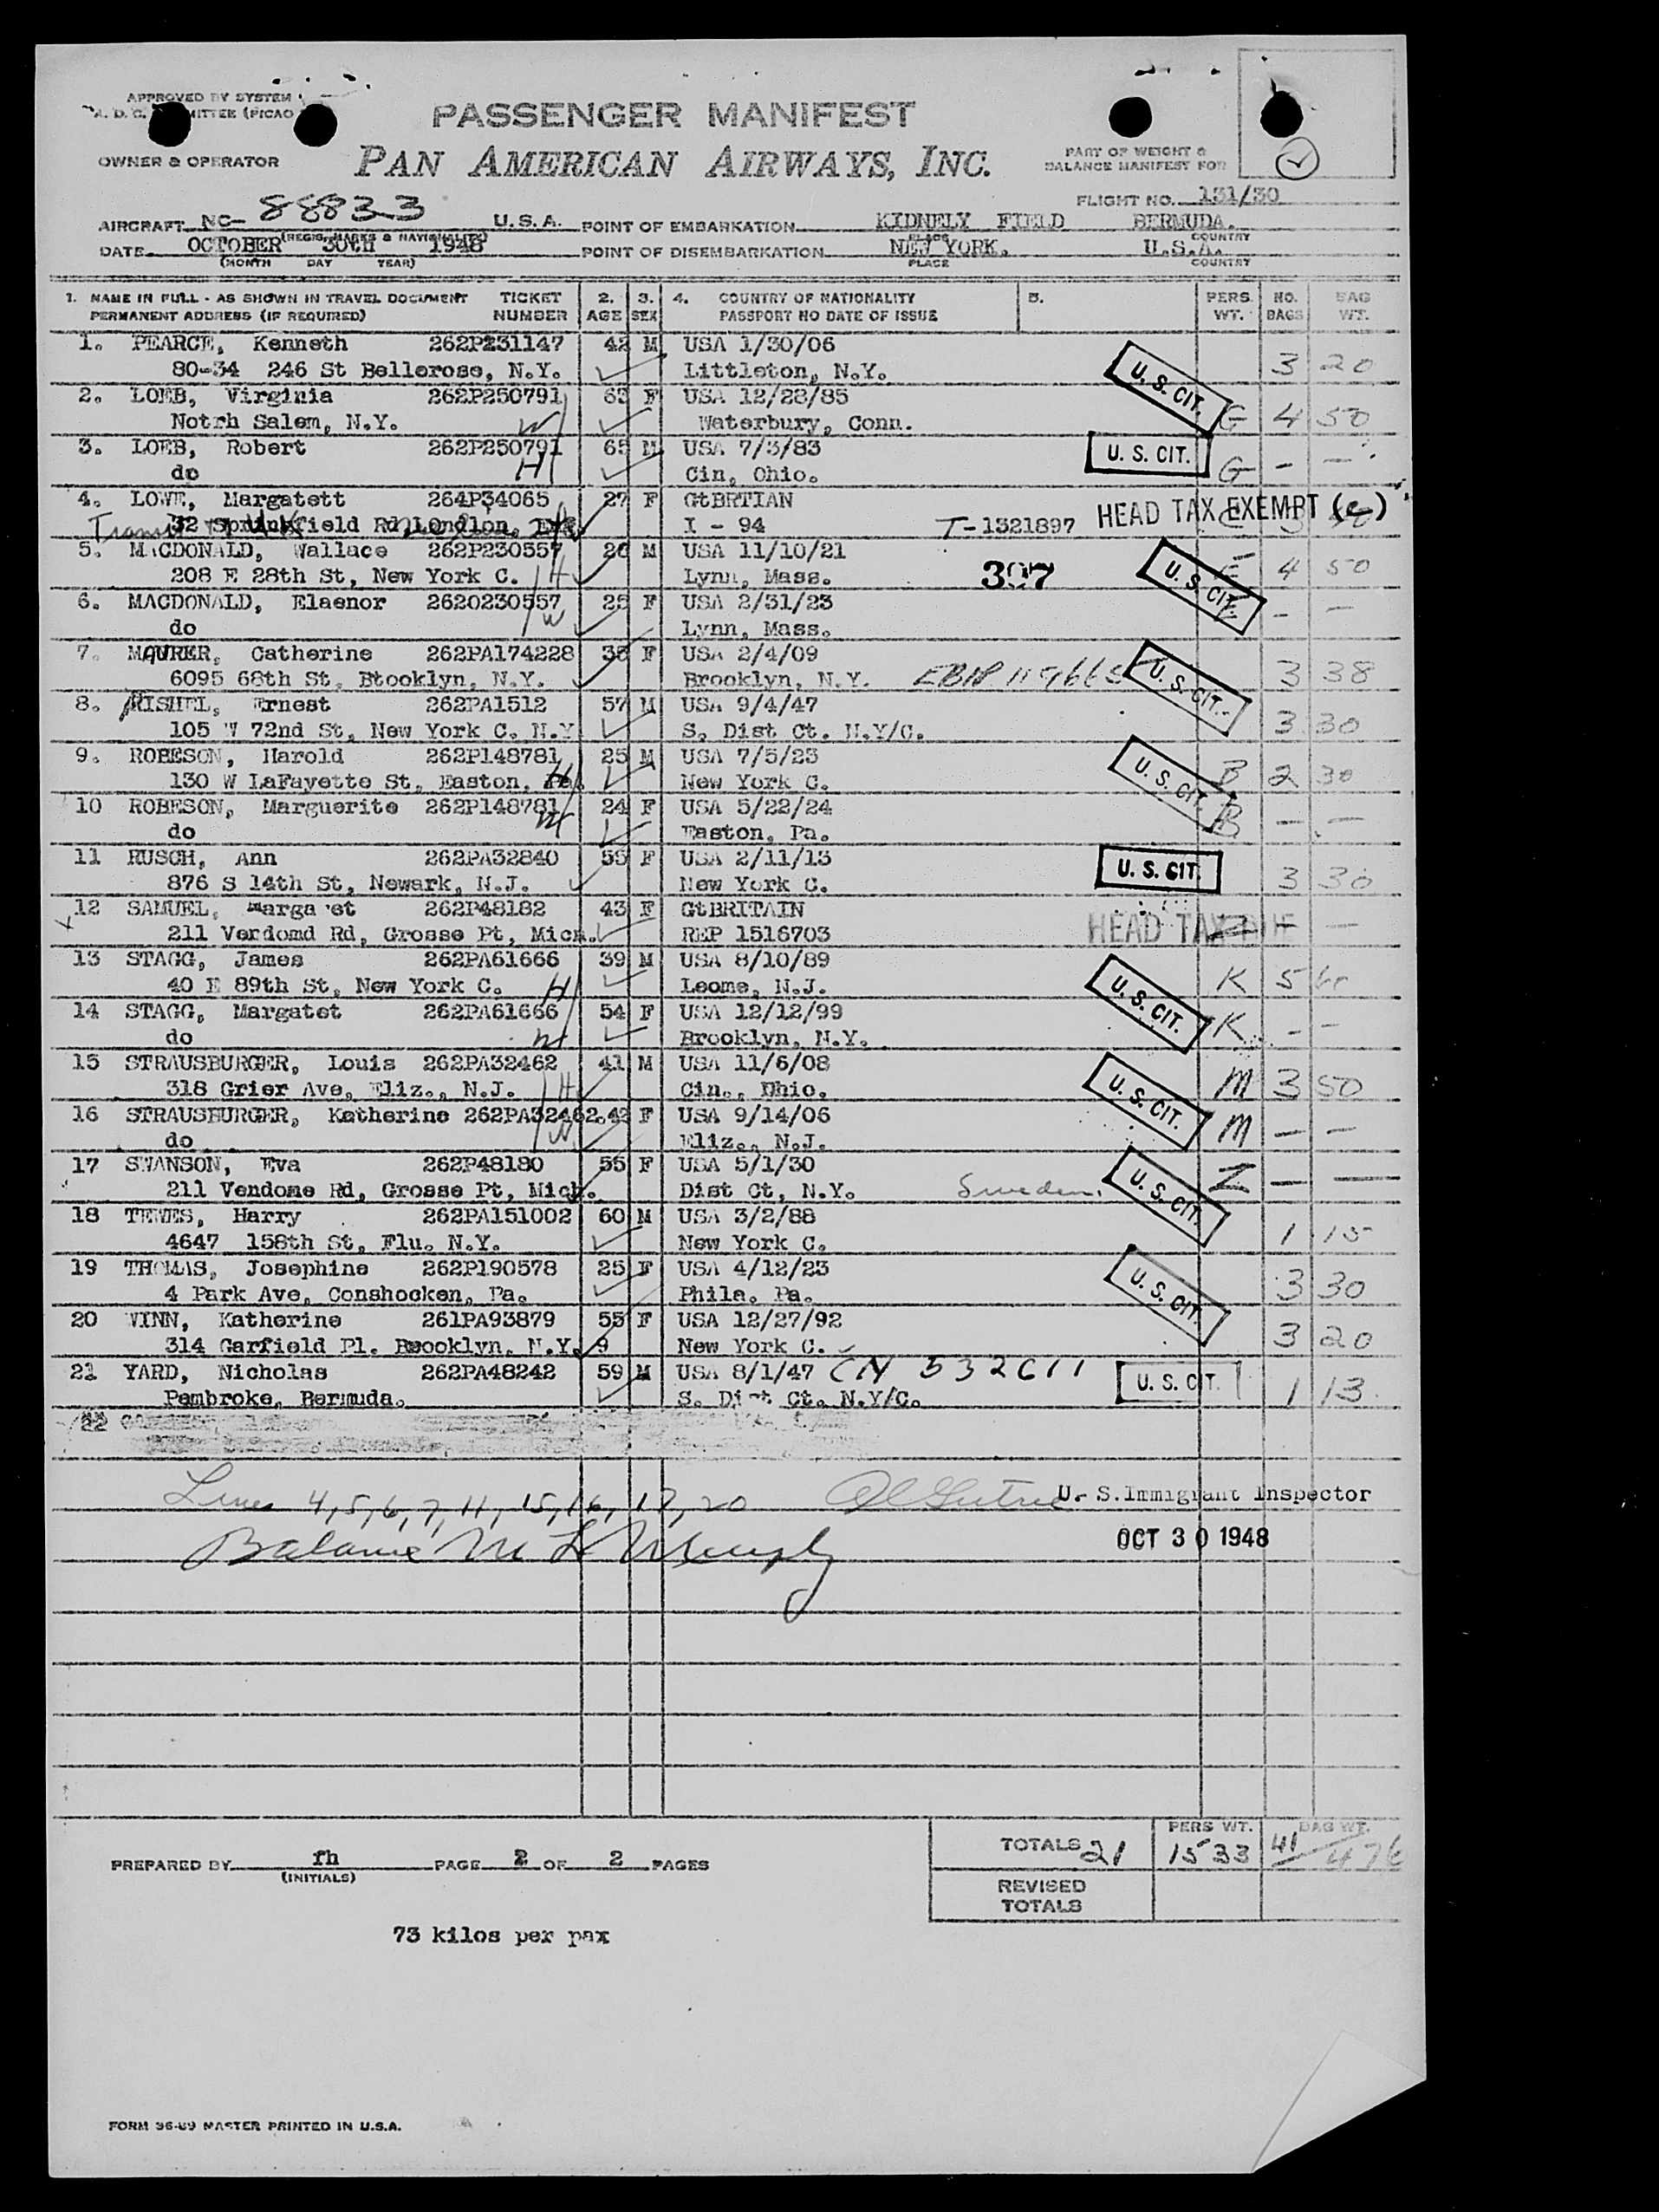 APPROVED BY SYSTEM
PASSENGER MANIFEST
OWNER & OPERATOR
PAN AMERICAN AIRWAYS, INC.
PART OF WEIGHT &
BALANCE MANIFEST FOR
FLIGHT NO. 131/30
AIRCRAFT NC- 88833 U.S.A. POINT OF EMBARKATION KIDNELY FIELD BERMUDA.
(REGIS. MARKS & NATIONALITY) PLACE COUNTRY
DATE OCTOBER 30th 1948 POINT OF DISEMBARKATION NEW YORK. U.S.A.
(MONTH DAY YEAR) PLACE COUNTRY
1. NAME IN FULL - AS SHOWN IN TRAVEL DOCUMENT TICKET 2. 3. 4. COUNTRY OF NATIONALITY 5. PERS. NO. BAG
PERMANENT ADDRESS (IF REQUIRED) NUMBER AGE SEX PASSPORT NO DATE OF ISSUE WT. BAGS WT.
1. PEARCE, Kenneth 262P231147 42 M USA 1/30/06
80-34 246 St Bellerose, N.Y. Littleton, N.Y. U. S. CIT. 3 20
2. LOEB, Virginia 262P250791 63 F USA 12/28/85
Notrh Salem, N.Y. W Waterbury, Conn. G 4 50
3. LOEB, Robert 262P250791 65 M USA 7/3/83
do H Cin, Ohio. U. S. CIT. G - -
4. LOWE, Margatett 264P34065 27 F GtBRTIAN
32 Springfield Rd London, I - 94 T-1321897 HEAD TAX EXEMPT (c)
5. MACDONALD, Wallace 262P230557 26 M USA 11/10/21
208 E 28th St, New York C. H Lynn, Mass. 307 U. S. CIT. E 4 50
6. MACDONALD, Elaenor 2620230557 25 F USA 2/31/23
do W Lynn, Mass. E - -
7. MAURER, Catherine 262PA174228 38 F USA 2/4/09
6095 68th St, Btooklyn, N.Y. Brooklyn, N.Y. U. S. CIT. 3 38
8. RISHEL, Ernest 262PA1512 57 M USA 9/4/47
105 W 72nd St, New York C. N.Y S. Dist Ct. N.Y/C. 3 30
9. ROBESON, Harold 262P148781 25 M USA 7/5/23
130 W LaFayette St, Easton, Pa. H New York C. U. S. CIT. B 2 30
10 ROBESON, Marguerite 262P148781 24 F USA 5/22/24
do W Easton, Pa. B - -
11 RUSCH, Ann 262PA32840 35 F USA 2/11/13
876 S 14th St, Newark, N.J. New York C. U. S. CIT. 3 30
12 SAMUEL, Margaret 262P48182 43 F GtBRITAIN
211 Verdomd Rd, Grosse Pt, Mich. REP 1516703 HEAD TAX DUE -
13 STAGG, James 262PA61666 39 M USA 8/10/89
40 E 89th St, New York C. H Leome, N.J. U. S. CIT. K 5
14 STAGG, Margatet 262PA61666 54 F USA 12/12/99
do W Brooklyn, N.Y. K - -
15 STRAUSBURGER, Louis 262PA32462 41 M USA 11/6/08
318 Grier Ave, Eliz., N.J. H Cin., Ohio. U. S. CIT. M 3 50
16 STRAUSBURGER, Katherine 262PA32462 42 F USA 9/14/06
do W Eliz., N.J. M - -
17 SWANSON, Eva 262P48180 55 F USA 5/1/30
211 Vendome Rd, Grosse Pt, Mich. Dist Ct, N.Y. Sweden. U. S. CIT. Z - -
18 TEWES, Harry 262PA151002 60 M USA 3/2/88
4647 158th St, Flu. N.Y. New York C. 1 15
19 THOMAS, Josephine 262P190578 25 F USA 4/12/23
4 Park Ave, Conshocken, Pa. Phila. Pa. U. S. CIT. 3 30
20 VINN, Katherine 261PA93879 55 F USA 12/27/92
314 Garfield Pl. Brooklyn. N.Y. 9 New York C. 3 20
21 YARD, Nicholas 262PA48242 59 M USA 8/1/47 CN 532611
Pembroke, Bermuda. S. Dist Ct. N.Y/C. U. S. CIT. 1 13
22
Lines 4, 5, 6, 7, 11, 15, 16, 17, 20 U. S. Immigrant Inspector
Balance OCT 30 1948
PERS WT. BAG WT.
TOTALS 21 1533 41 476
PREPARED BY rh PAGE 2 OF 2 PAGES
(INITIALS)
REVISED
TOTALS
73 kilos per pax
FORM 96-89 MASTER PRINTED IN U.S.A.